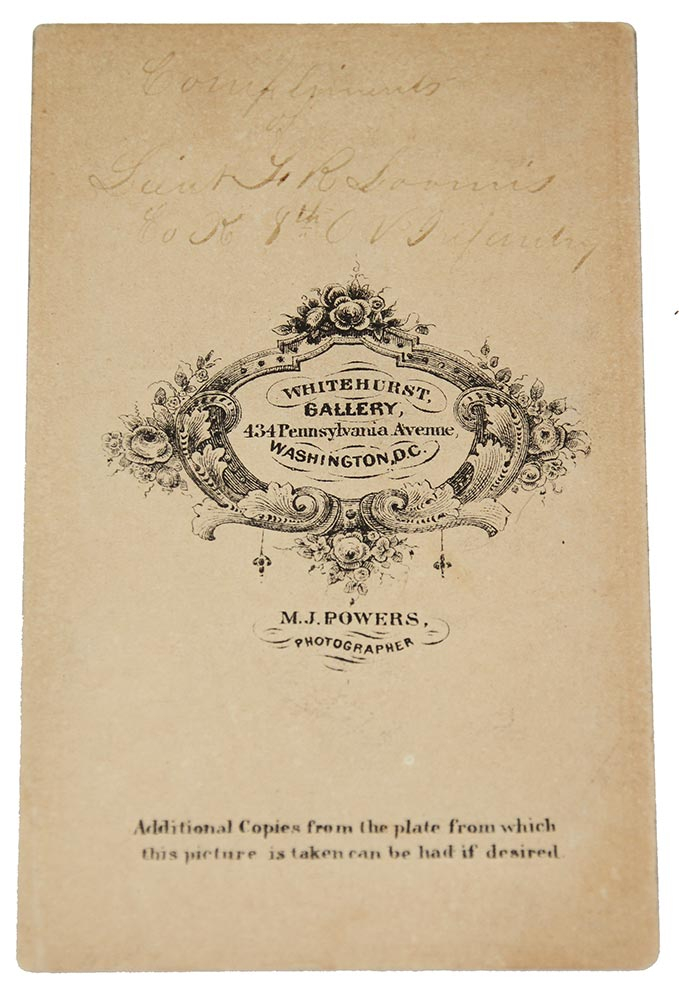 Compliments
of
Lieut F R Loomis
Co K 8th O V Infantry
WHITEHURST,
GALLERY,
434 Pennsylvania Avenue,
WASHINGTON, D.C.
M. J. POWERS,
PHOTOGRAPHER
Additional Copies from the plate from which
this picture is taken can be had if desired.